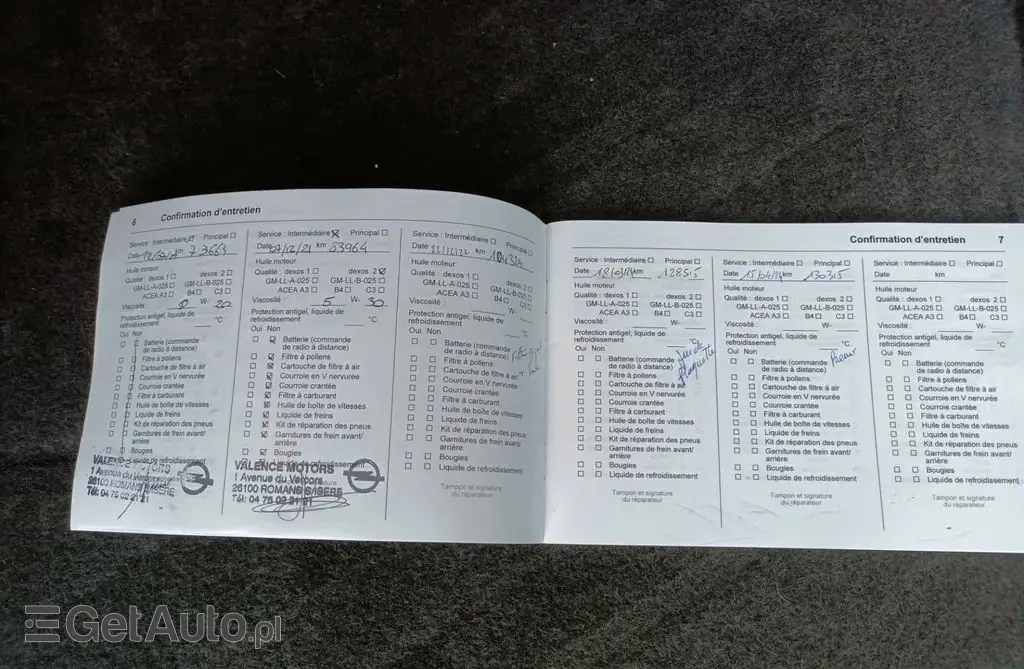 6 Confirmation d'entretien
Service : Intermédiaire Principal
Date km 73663
Huile moteur
Qualité : dexos 1 dexos 2
GM-LL-A-025 GM-LL-B-025
ACEA A3 B4 C3
Viscosité : W- 20
Protection antigel, liquide de
refroidissement °C
Oui Non
Batterie (commande
de radio à distance)
Filtre à pollens
Cartouche de filtre à air
Courroie en V nervurée
Courroie crantée
Filtre à carburant
Huile de boîte de vitesses
Liquide de freins
Kit de réparation des pneus
Garnitures de frein avant/
arrière
Bougies
Liquide de refroidissement
VALENCE MOTORS
1 Avenue du Vercors
26100 ROMANS S/ISERE
Tél: 04 75 02 21 21
Service : Intermédiaire Principal
Date 07/12/21 km 83964
Huile moteur
Qualité : dexos 1 dexos 2
GM-LL-A-025 GM-LL-B-025
ACEA A3 B4 C3
Viscosité : 5 W- 30
Protection antigel, liquide de
refroidissement °C
Oui Non
Batterie (commande
de radio à distance)
Filtre à pollens
Cartouche de filtre à air
Courroie en V nervurée
Courroie crantée
Filtre à carburant
Huile de boîte de vitesses
Liquide de freins
Kit de réparation des pneus
Garnitures de frein avant/
arrière
Bougies
refroidissement
VALENCE MOTORS
1 Avenue du Vercors
26100 ROMANS S/ISERE
Tél: 04 75 02 21 21
Service : Intermédiaire Principal
Date km
Huile moteur
Qualité : dexos 1 dexos 2
GM-LL-A-025 GM-LL-B-025
ACEA A3 B4 C3
Viscosité : W-
Protection antigel, liquide de
refroidissement °C
Oui Non
Batterie (commande
de radio à distance)
Filtre à pollens
Cartouche de filtre à air
Courroie en V nervurée
Courroie crantée
Filtre à carburant
Huile de boîte de vitesses
Liquide de freins
Kit de réparation des pneus
Garnitures de frein avant/
arrière
Bougies
Liquide de refroidissement
Tampon et signature
du réparateur
Confirmation d'entretien 7
Service : Intermédiaire Principal
Date 18/03/24 km 128515
Huile moteur
Qualité : dexos 1 dexos 2
GM-LL-A-025 GM-LL-B-025
ACEA A3 B4 C3
Viscosité : W-
Protection antigel, liquide de
refroidissement °C
Oui Non
Batterie (commande
de radio à distance)
Filtre à pollens
Cartouche de filtre à air
Courroie en V nervurée
Courroie crantée
Filtre à carburant
Huile de boîte de vitesses
Liquide de freins
Kit de réparation des pneus
Garnitures de frein avant/
arrière
Bougies
Liquide de refroidissement
Tampon et signature
du réparateur
Service : Intermédiaire Principal
Date 15/04/24 km 130315
Huile moteur
Qualité : dexos 1 dexos 2
GM-LL-A-025 GM-LL-B-025
ACEA A3 B4 C3
Viscosité : W-
Protection antigel, liquide de
refroidissement °C
Oui Non
Pneus
Batterie (commande
de radio à distance)
Filtre à pollens
Cartouche de filtre à air
Courroie en V nervurée
Courroie crantée
Filtre à carburant
Huile de boîte de vitesses
Liquide de freins
Kit de réparation des pneus
Garnitures de frein avant/
arrière
Bougies
Liquide de refroidissement
Tampon et signature
du réparateur
Service : Intermédiaire Principal
Date km
Huile moteur
Qualité : dexos 1 dexos 2
GM-LL-A-025 GM-LL-B-025
ACEA A3 B4 C3
Viscosité : W-
Protection antigel, liquide de
refroidissement °C
Oui Non
Batterie (commande
de radio à distance)
Filtre à pollens
Cartouche de filtre à air
Courroie en V nervurée
Courroie crantée
Filtre à carburant
Huile de boîte de vitesses
Liquide de freins
Kit de réparation des pneus
Garnitures de frein avant/
arrière
Bougies
Liquide de refroidissement
Tampon et signature
du réparateur
GetAuto.pl